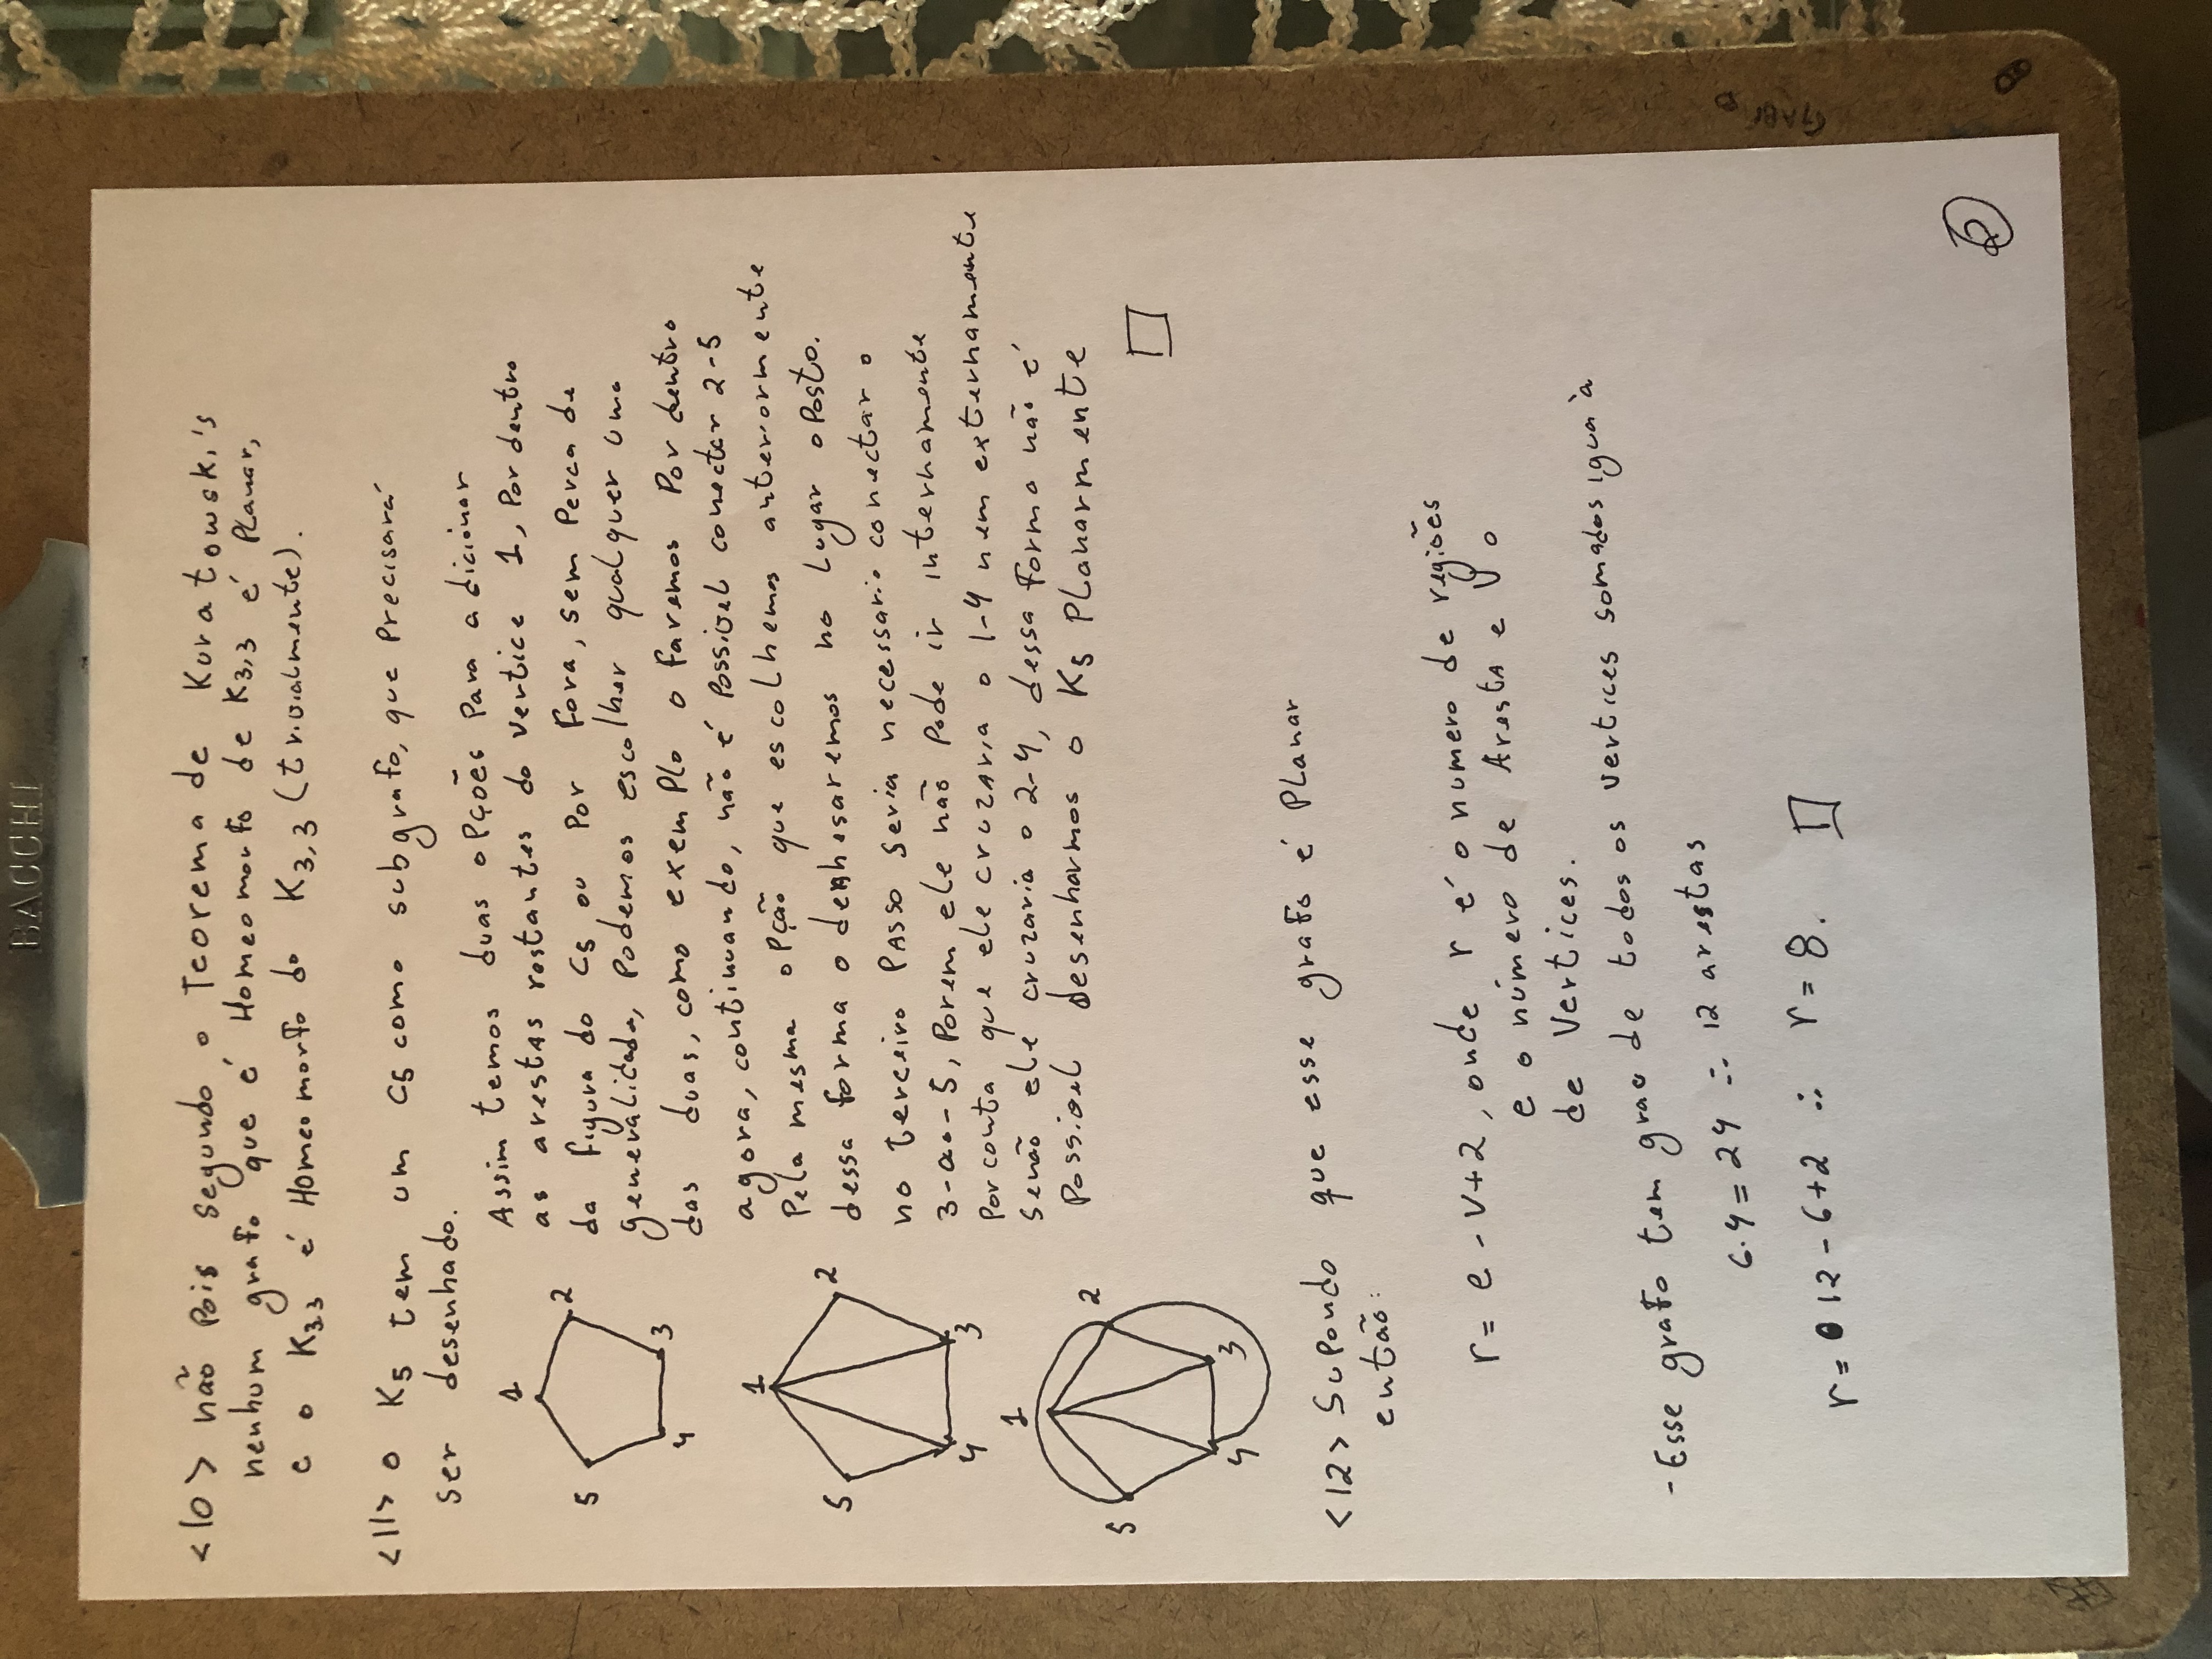 BACCHI
<10> não pois segundo o Teorema de Kuratowski's
nenhum grafo que é Homeomorfo de K3,3 é Planar,
e o K33 é Homeomorfo do K3,3 (trivialmente).
<11> o K5 tem um C5 como subgrafo, que Precisará
ser desenhado.
Assim temos duas opções Para adicionar
as arestas restantes do vertice 1, Por dentro
da figura do C5 ou Por fora, sem Perca de
generalidade, Podemos escolher qualquer uma
das duas, como exemplo o faremos Por dentro
agora, continuando, não é Possivel conectar 2-5
Pela mesma opção que escolhemos anteriormente
dessa forma o desenharemos no Lugar oposto.
no terceiro Passo seria necessario conectar o
3-ao-5, Porem ele não Pode ir internamente
Por conta que ele cruzaria o 1-4 nem externamente
senão ele cruzaria o 2-4, dessa forma não é
Possivel desenharmos o K5 Planarmente
1
2
3
4
5
1
2
3
4
5
1
2
3
4
5
<12> Supondo que esse grafo é Planar
então:
r = e - v + 2, onde r é o numero de regiões
e o número de Aresta e v o
de Vertices.
- Esse grafo tem grau de todos os vertices somados igua à
6.4 = 24 ∴ 12 arestas
r = 12 - 6 + 2 ∴ r = 8.
6
GABI